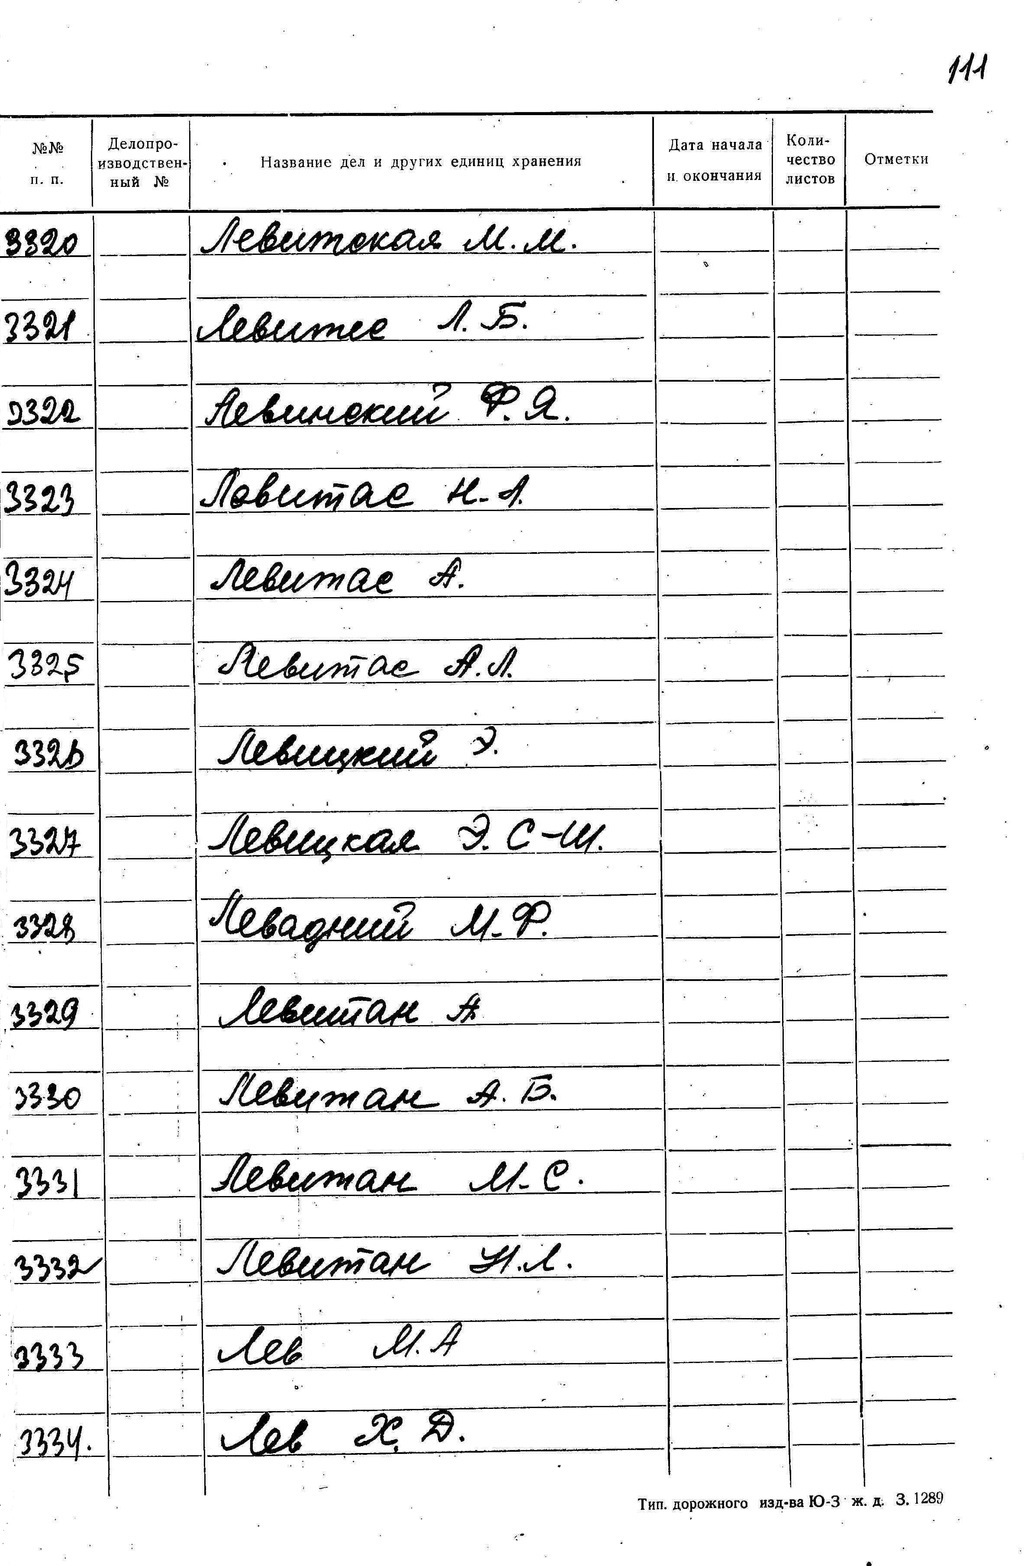 111
№№ п. п. Делопро-изводствен-ный № Название дел и других единиц хранения Дата начала и окончания Коли-чество листов Отметки
3320 Левитская М. М.
3321 Левитес Л. Б.
3322 Левинский Ф. Я.
3323 Левитас Н. Л.
3324 Левитас А.
3325 Левитас А. Л.
3326 Левицкий Э.
3327 Левицкая Э. С-Ш.
3328 Левадний М. Ф.
3329 Левитан А.
3330 Левитан А. Б.
3331 Левитан М. С.
3332 Левитан И. Л.
3333 Лев М. А
3334. Лев Х. Д.
Тип. дорожного изд-ва Ю-З ж. д. З. 1289